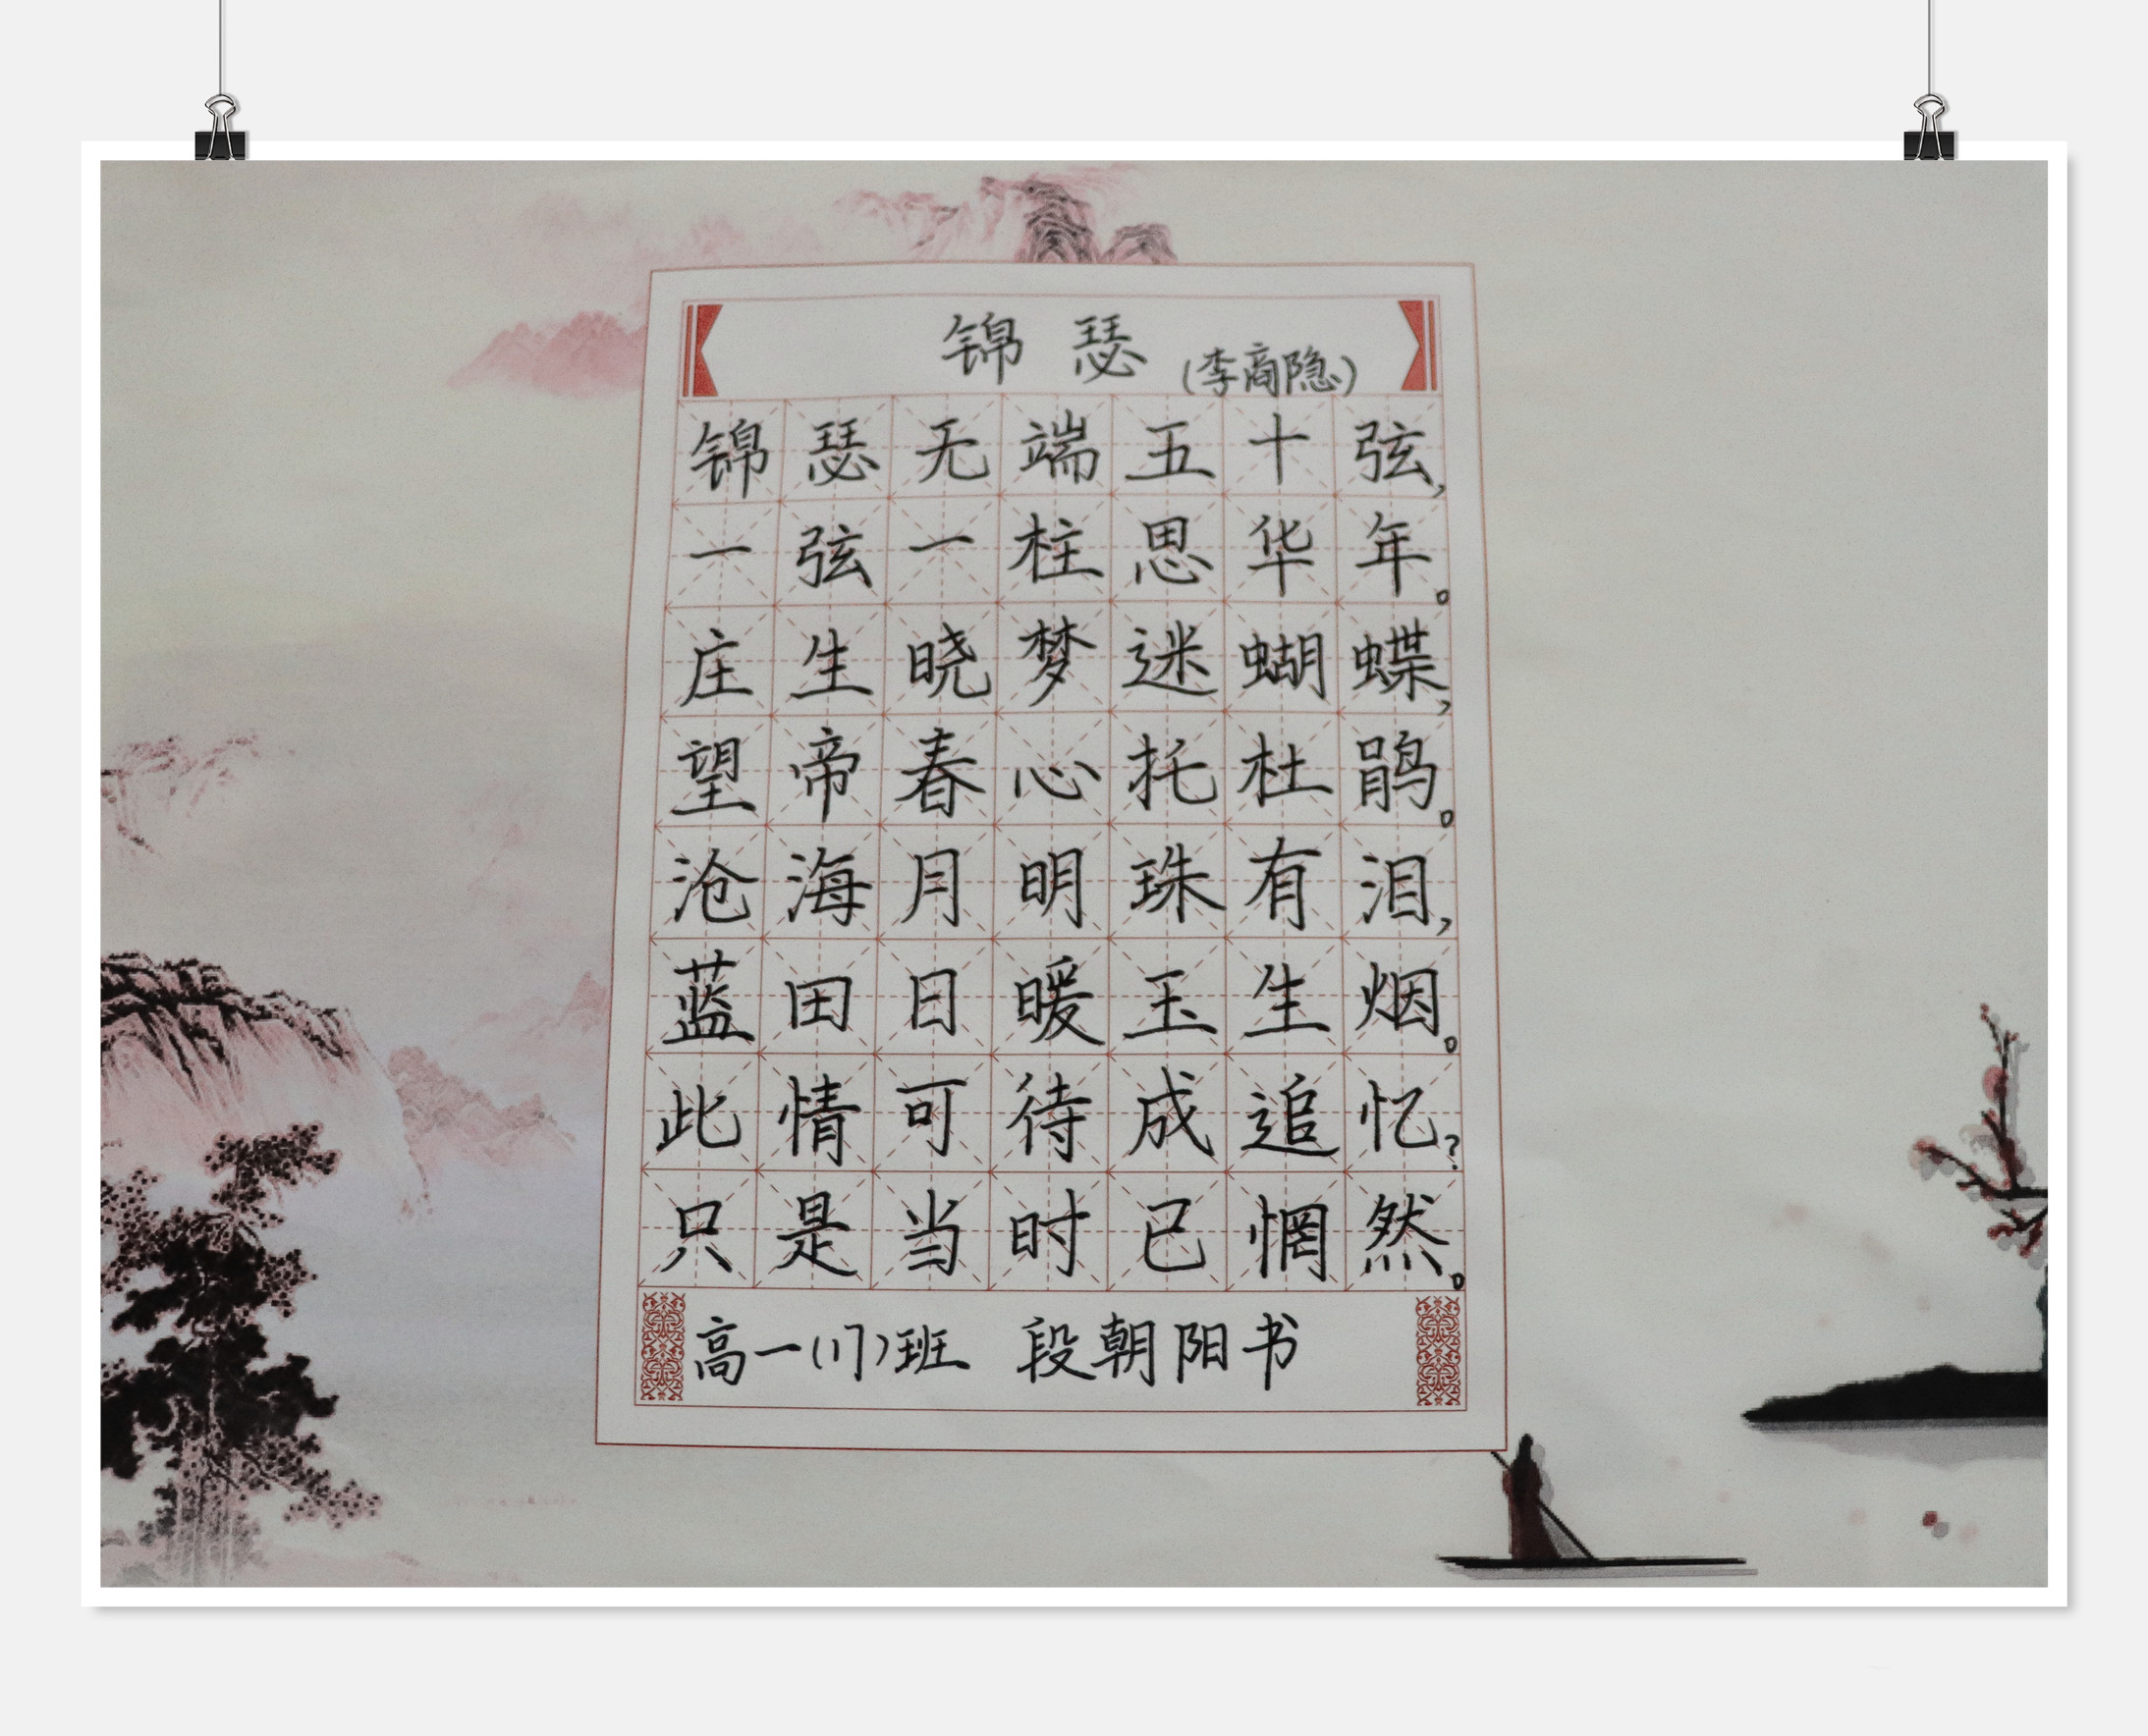 锦瑟(李商隐)
锦瑟无端五十弦,
一弦一柱思华年。
庄生晓梦迷蝴蝶,
望帝春心托杜鹃。
沧海月明珠有泪,
蓝田日暖玉生烟。
此情可待成追忆?
只是当时已惘然。
高一(17)班 段朝阳书